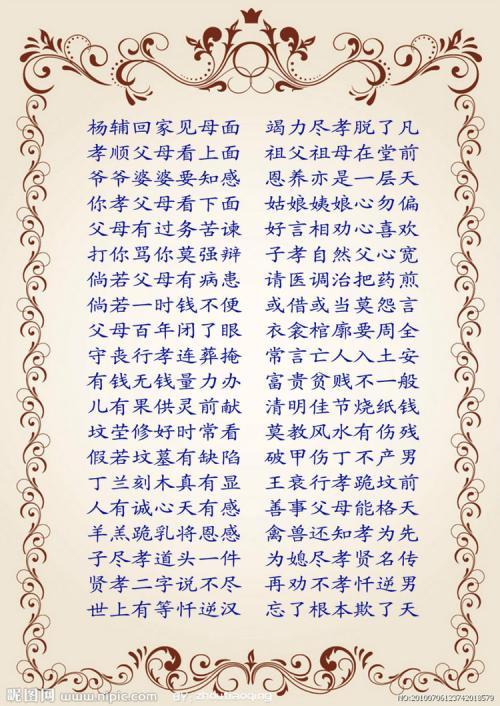 杨辅回家见母面 竭力尽孝脱了凡
孝顺父母看上面 祖父祖母在堂前
爷爷婆婆要知感 恩养亦是一层天
你孝父母看下面 姑娘姨娘心勿偏
父母有过务苦谏 好言相劝心喜欢
打你骂你莫强辩 子孝自然父心宽
倘若父母有病患 请医调治把药煎
倘若一时钱不便 或借或当莫怨言
父母百年闭了眼 衣衾棺廓要周全
守丧行孝连葬掩 常言亡人入土安
有钱无钱量力办 富贵贫贱不一般
儿有果供灵前献 清明佳节烧纸钱
坟茔修好时常看 莫教风水有伤残
假若坟墓有缺陷 破甲伤丁不产男
丁兰刻木真有显 王裒行孝跪坟前
人有诚心天有感 善事父母能格天
羊羔跪乳将恩感 禽兽还知孝为先
子尽孝道头一件 为媳尽孝贤名传
贤孝二字说不尽 再劝不孝忤逆男
世上有等忤逆汉 忘了根本欺了天
昵图网 www.nipic.com BY: zhoutiaoqing NO:20100706123742018579